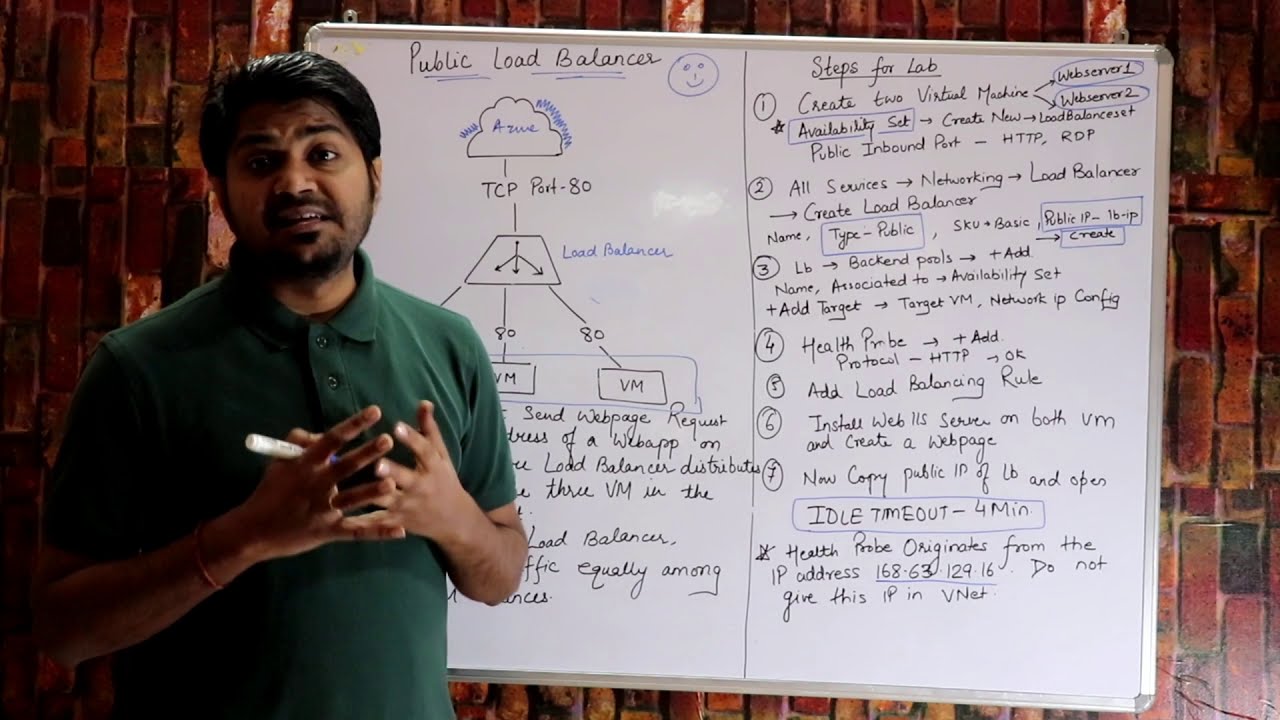 Public Load Balancer
Azure
TCP Port-80
Load Balancer
80
80
VM
VM
Send Webpage Request
of a Webapp on
Load Balancer distributes
three VM in the
Load Balancer,
equally among
Steps for Lab
① Create two Virtual Machine
Webserver1
Webserver2
* Availability Set → Create New → LoadBalanceset
Public Inbound Port - HTTP, RDP
② All Services → Networking → Load Balancer
→ Create Load Balancer
Name, Type - Public, SKU → Basic, Public IP - lb-ip
→ Create
③ Lb → Backend pools → + Add
Name, Associated to → Availability Set
+ Add Target → Target VM, Network ip Config
④ Health Probe → + Add.
Protocol - HTTP → OK
⑤ Add Load Balancing Rule
⑥ Install Web IIS Server on both vm
and Create a Webpage
⑦ Now Copy public IP of lb and open
IDLE TIMEOUT - 4 Min.
* Health Probe Originates from the
IP address 168.63.129.16. Do not
give this IP in VNet.